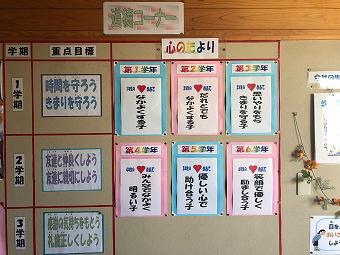 道徳コーナー
心のたより
学期
重点目標
1学期
時間を守ろう
きまりを守ろう
2学期
友達と仲良くしよう
友達に親切にしよう
3学期
感謝の気持ちをもとう
礼儀正しくしよう
第1学年
なかよくする子
第2学年
だれとでも
なかよくする子
第3学年
思いやりをもち
きまりを守る子
第4学年
みんなでなかよく
明るい子
第5学年
優しい心で
助け合う子
第6学年
笑顔で優しく
励まし合う子